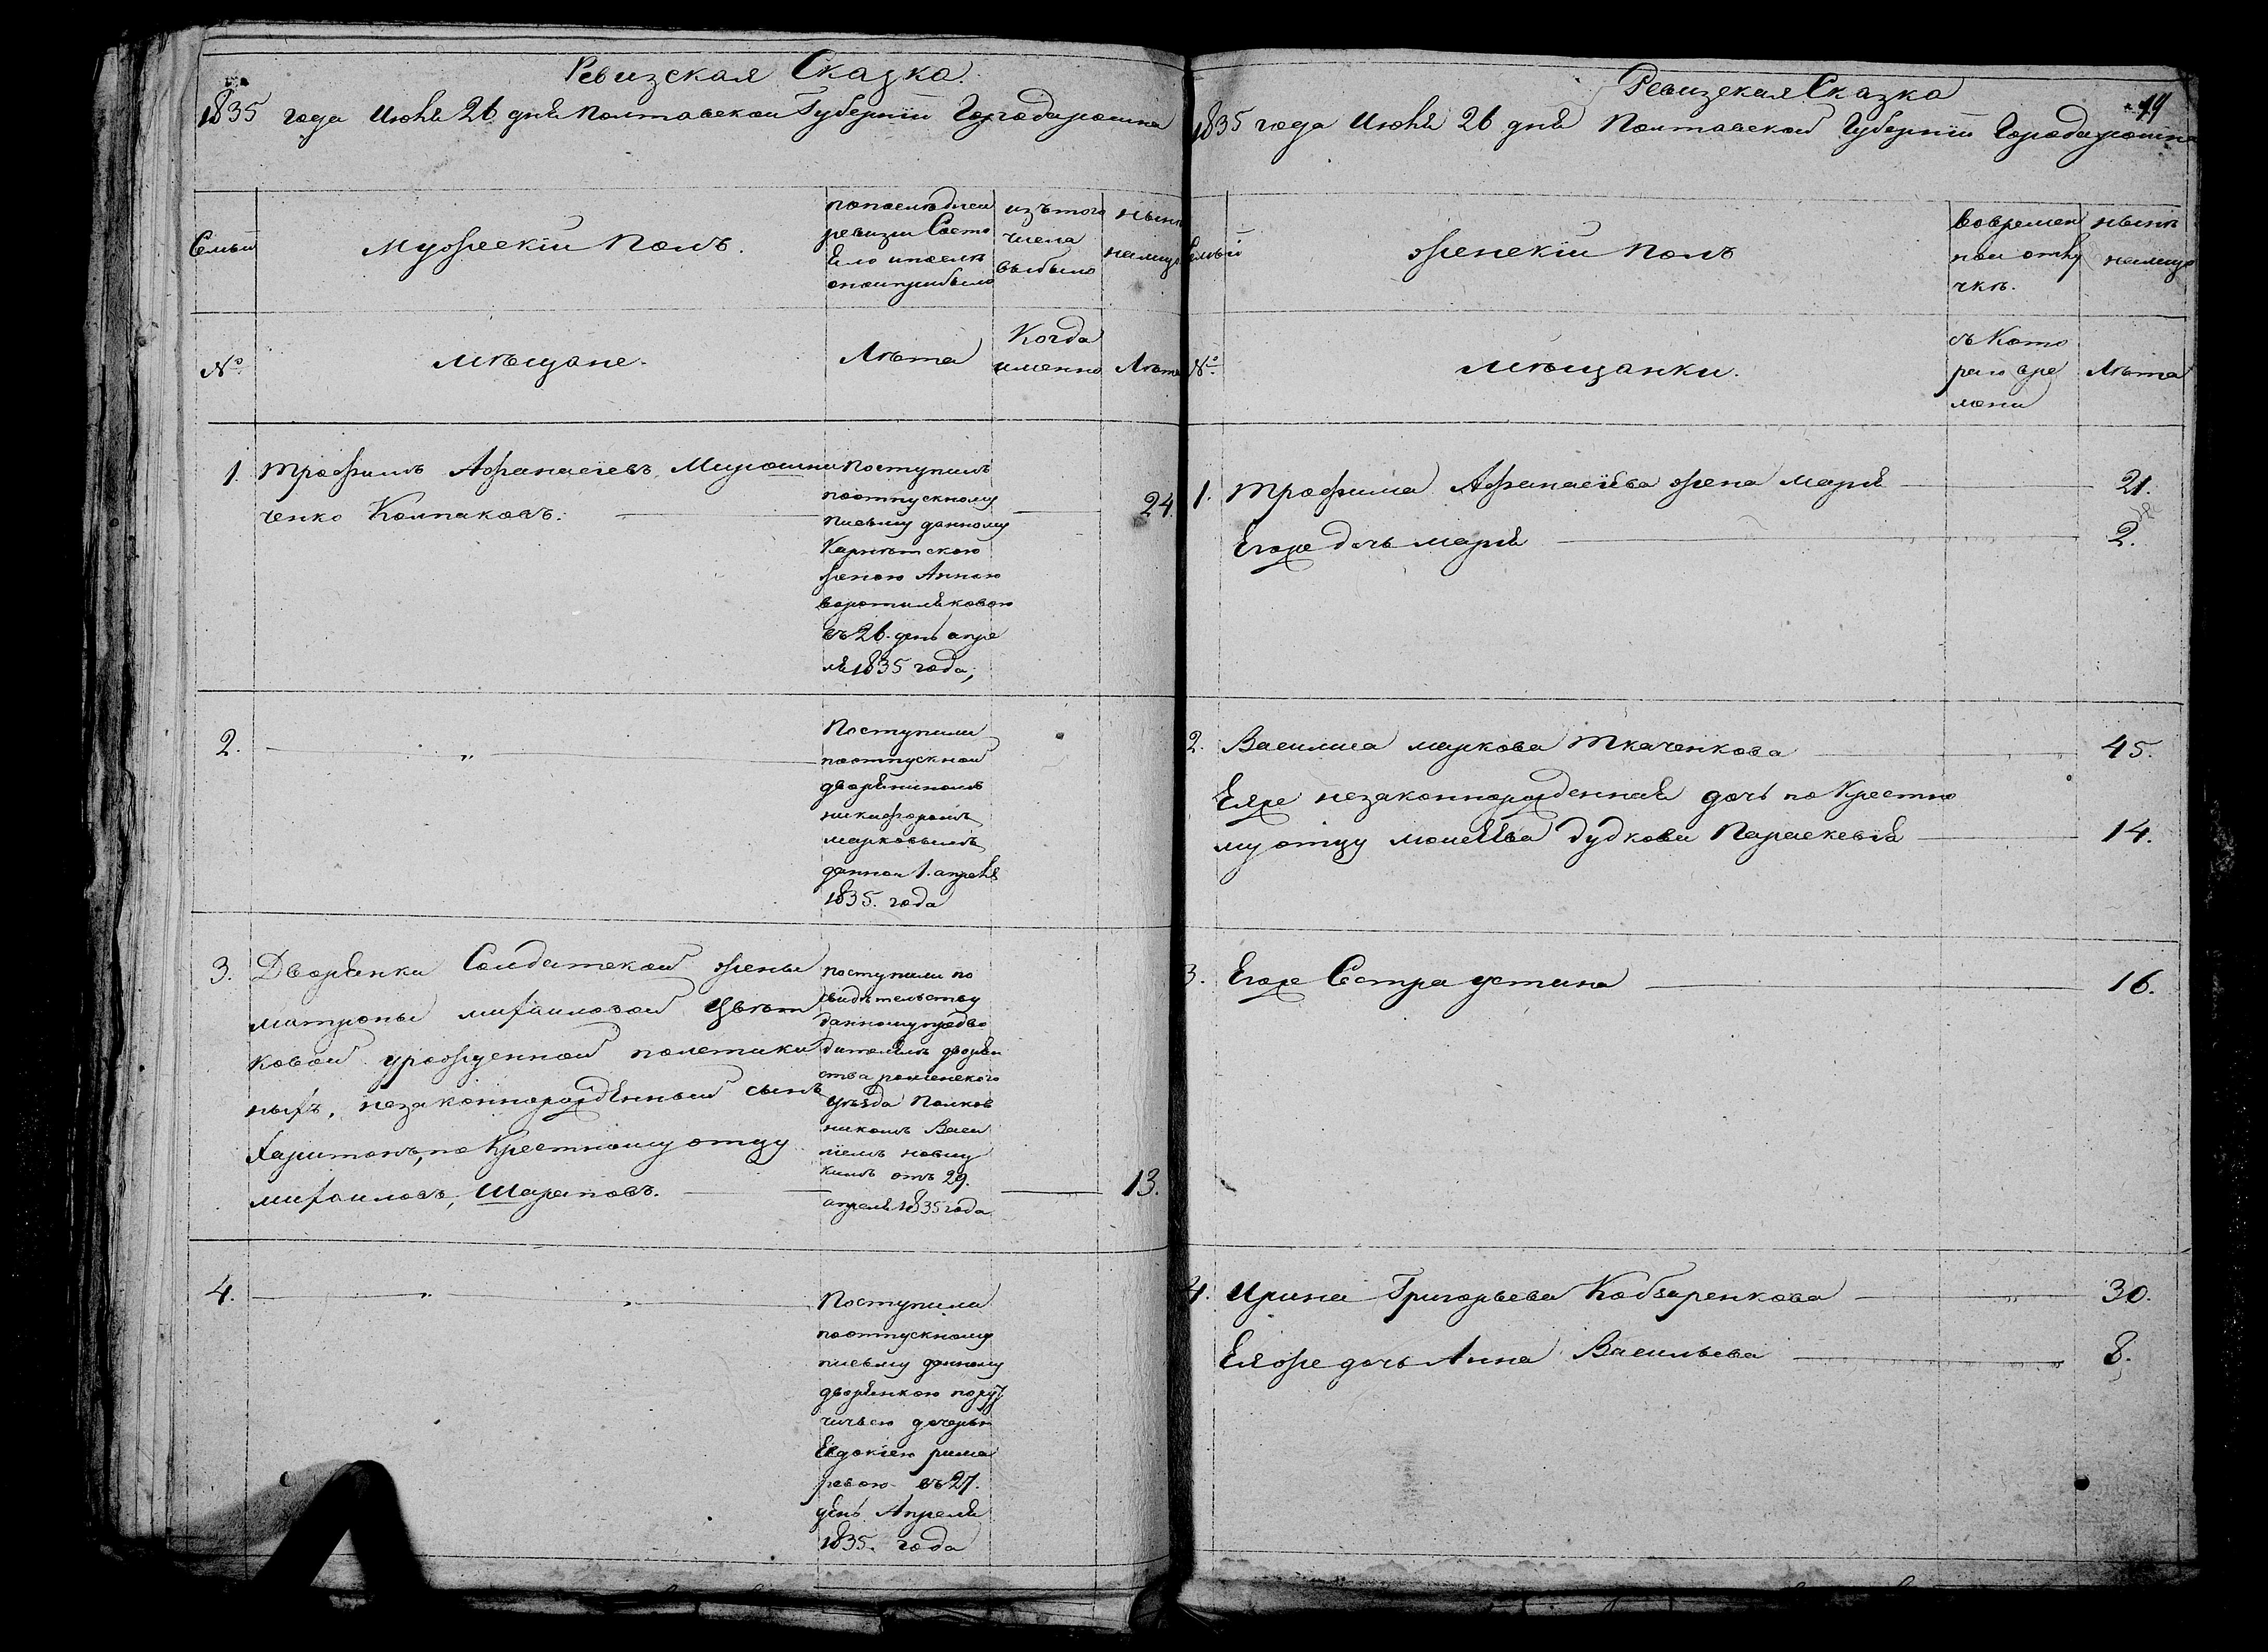 Ревизская Сказка
1835 года Июня 26 дня Полтавской Губернiи Города ромна
Семьи
Мужескiй Полъ.
попоследней
ревизiи Состо
яло ипосле
оной прибыло
изътого
числа
выбыло
ныне
налицо
№
мѣщане.
Лѣта
Когда
именно
Лѣта
1. трофимъ Афанасiевъ Мирошни
ченко Колпаковъ.
Поступилъ
поотпускному
письму данному
Карнѣтскою
женою Анною
воротиляковою
въ 26. день апре
ля 1835 года,
24.
2.
Поступили
поотпускной
дворяниномъ
никифоромъ
марковымъ
данной 1. апреля
1835. года
3. Дворянки Солдатской жены
матроны михайловой Цвѣт
ковой урожденной полетики
ныхъ, незаконнорожденный сынъ
Харитонъ, по Крестному отцу
михайловъ, Шараповъ.
поступили по
свидѣтельству
данному предво
дителемъ дворян
ства роменского
уѣзда Полков
никомъ Васи
лiемъ новиц
кимъ отъ 29.
апреля 1835 года
13.
4.
Поступила
поотпускному
письму данному
дворянкою пору
чичьею дочерью
Евдокiею рима
ревою въ 27.
день Апреля
1835. года
Ревизская Сказка
19
1835 года Июня 26 дня Полтавской Губернiи Города ромна
Семьи
женскiй полъ
вовремен
ной отлу
чкѣ.
нынѣ
налицо
№
мѣщанки.
съ Кото
раго вре
мени
Лѣта
1. трофима Афанасiева жена марiя 21.
Егоже дочь марiя 2.
2. Василиса маркова Ткаченкова 45.
Еяже незаконнорожденная дочь по Крестно
му отцу моисеева дудкова Параскевiя 14.
3. Егоже Сестра устина 16.
4. Ирина Григорьева Кобзаренкова 30.
Еяже дочь Анна Васильева 8.